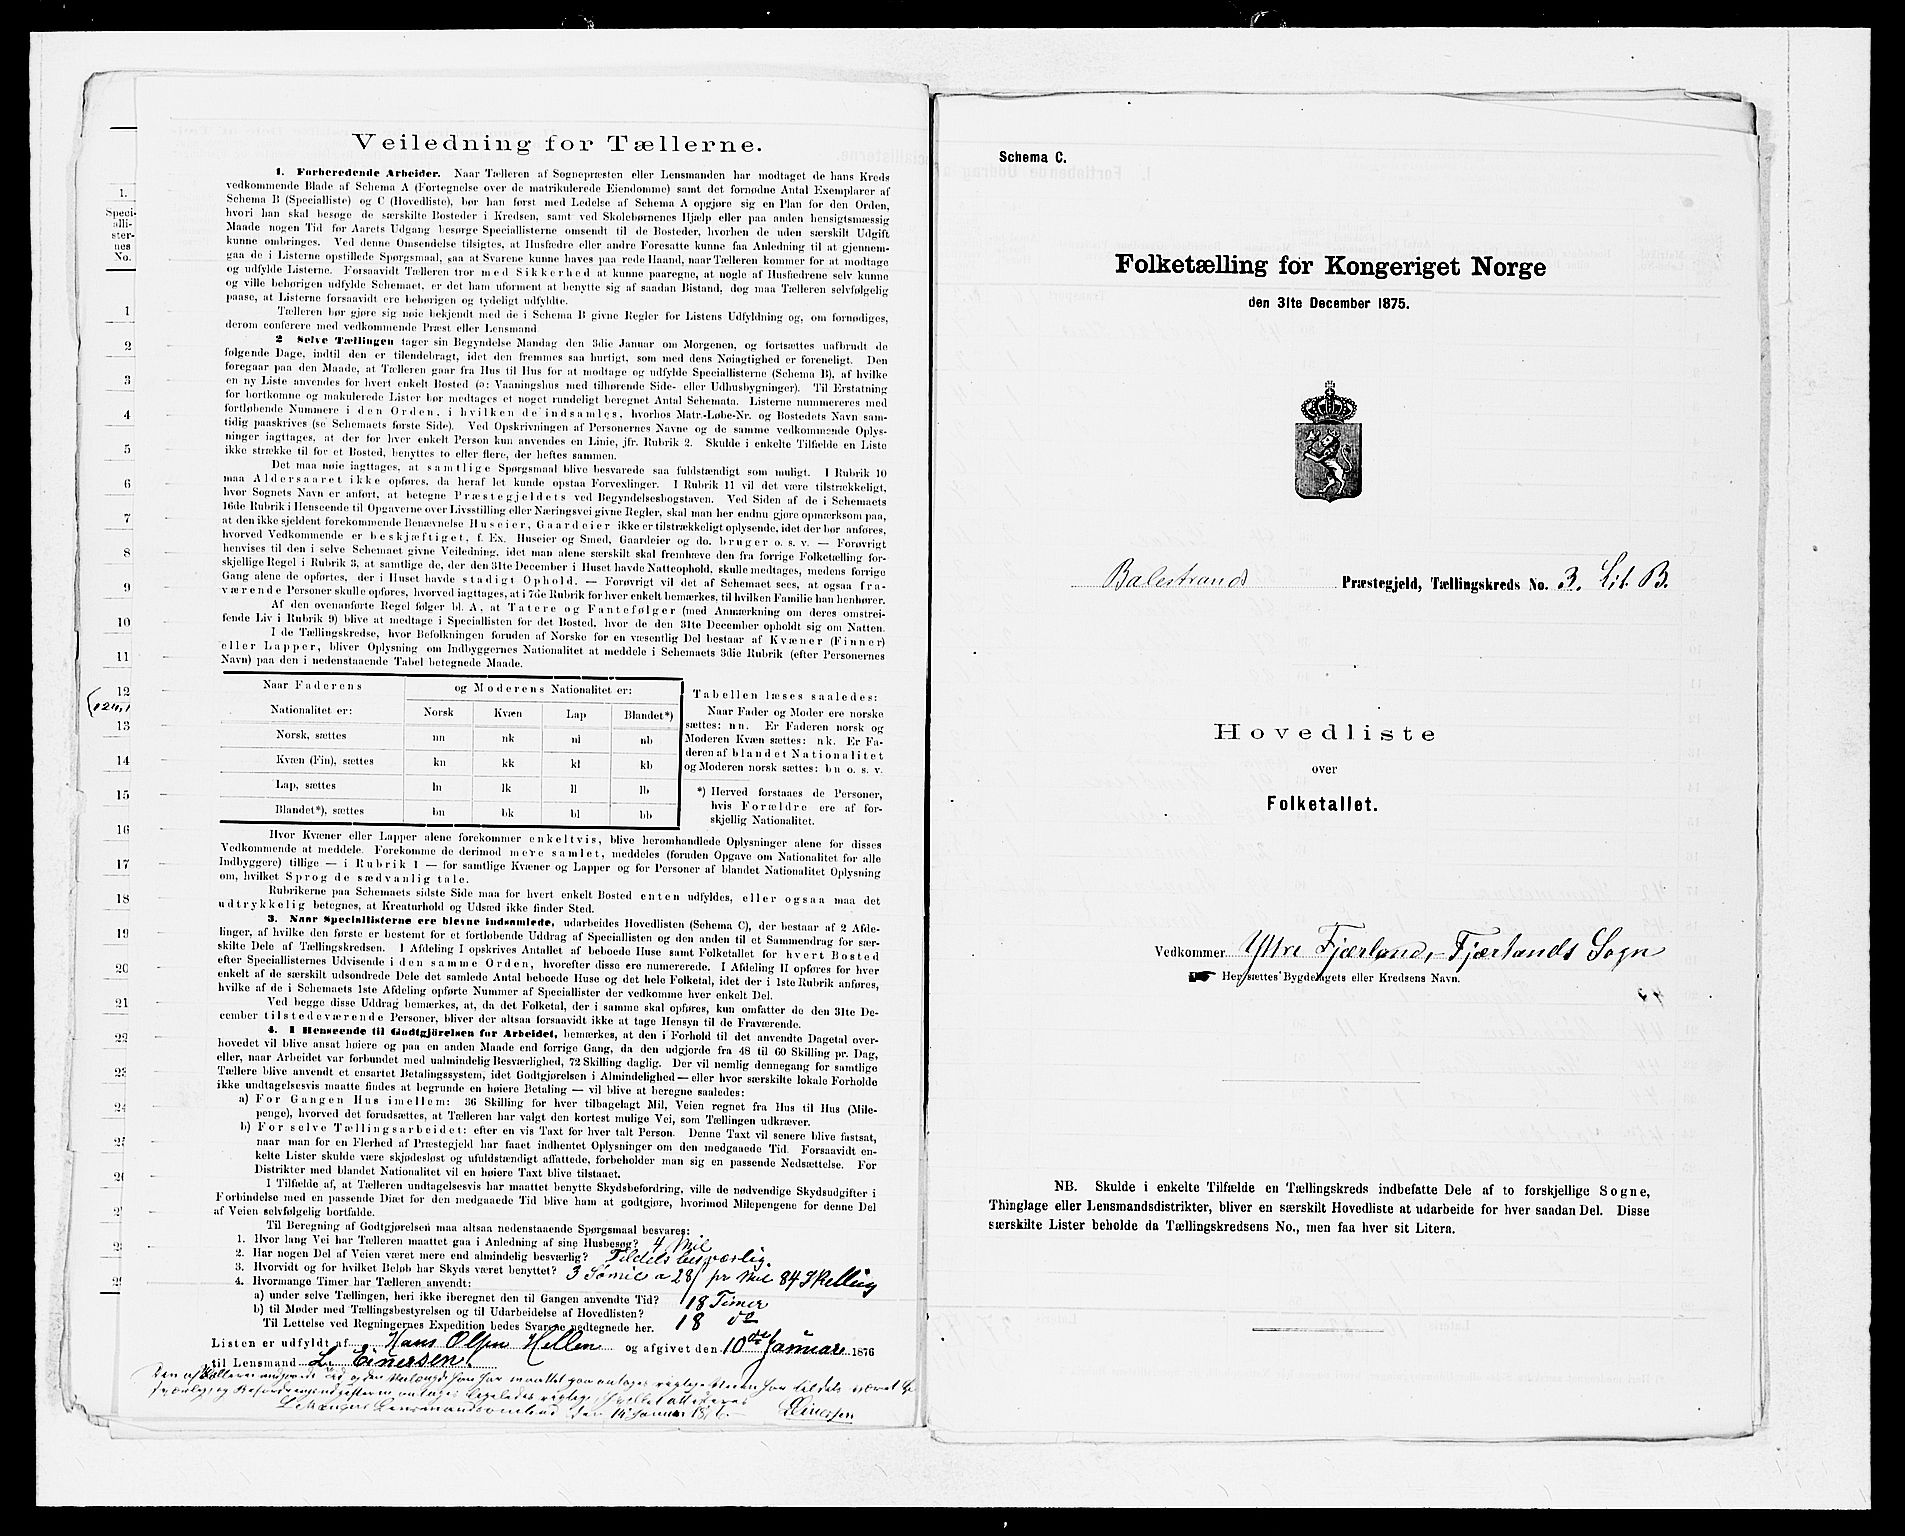 Veiledning for Tællerne.
1. Forberedende Arbeider. Naar Tælleren af Sognepræsten eller Lensmanden har modtaget de hans Kreds
vedkommende Blade af Schema A (Fortegnelse over de matrikulerede Eiendomme) samt det fornødne Antal Exemplarer af
Schema B (Specialliste) og C (Hovedliste), bør han først med Ledelse af Schema A opgjøre sig en Plan for den Orden,
hvori han skal besøge de særskilte Bosteder i Kredsen, samt ved Skolebørnenes Hjælp eller paa anden hensigtsmæssig
Maade nogen Tid før Aarets Udgang besørge Speciallisterne omsendt til de Bosteder, hvorhen de uden særskilt Udgift
kunne ombringes. Ved denne Omsendelse tilsigtes, at Husfædre eller andre Foresatte kunne faa Anledning til at gjennem-
gaa de i Listerne opstillede Spørgsmaal, saa at Svarene kunne haves paa rede Haand, naar Tælleren kommer for at modtage
og udfylde Listerne. Forsaavidt Tælleren tror med Sikkerhed at kunne paaregne, at nogle af Husfædrene selv kunne
og ville behørigen udfylde Schemaet, er det ham uforment at benytte sig af saadan Bistand, dog maa Tælleren selvfølgelig
paase, at Listerne forsaavidt ere behørigen og tydeligt udfyldte.
Tælleren bør gjøre sig nøie bekjendt med de i Schema B givne Regler for Listens Udfyldning og, om fornødiges,
derom conferere med vedkommende Præst eller Lensmand.
2 Selve Tællingen tager sin Begyndelse Mandag den 3die Januar om Morgenen, og fortsættes uafbrudt de
følgende Dage, indtil den er tilendebragt, idet den fremmes saa hurtigt, som med dens Nøiagtighed er foreneligt. Den
foregaar paa den Maade, at Tælleren gaar fra Hus til Hus for at modtage og udfylde Speciallisterne (Schema B), af hvilke
en ny Liste anvendes for hvert enkelt Bosted (ɔ: Vaaningshus med tilhørende Side- eller Udhusbygninger). Til Erstatning
for bortkomne og makulerede Lister bør medtages et noget rundeligt beregnet Antal Schemata. Listerne nummereres med
fortløbende Nummere i den Orden, i hvilken de indsamles, hvorhos Matr.-Løbe-Nr. og Bostedets Navn sam-
tidig paaskrives (se Schemaets første Side). Ved Opskrivningen af Personernes Navne og de samme vedkommende Oplys-
ninger iagttages, at der for hver enkelt Person kun anvendes en Linie, jfr. Rubrik 2. Skulde i enkelte Tilfælde en Liste
ikke strække til for et Bosted, benyttes to eller flere, der heftes sammen.
Det maa nøie iagttages, at samtlige Spørgsmaal blive besvarede saa fuldstændigt som muligt. I Rubrik 10
maa Aldersaaret ikke opføres, da heraf let kunde opstaa Forvexlinger. I Rubrik 11 vil det være tilstrækkeligt,
hvor Sognets Navn er anført, at betegne Præstegjeldets ved Begyndelsesbogstaven. Ved Siden af de i Schemaets
16de Rubrik i Henseende til Opgaverne over Livsstilling eller Næringsvei givne Regler, skal man her endnu gjøre opmærksom paa,
at den ikke sjeldent forekommende Benævnelse Huseier, Gaardeier ikke er tilstrækkeligt oplysende, idet der bør anføres,
hvorved Vedkommende er beskjæftiget, f. Ex. Huseier og Smed, Gaardeier og do. bruger o. s. v. — Forøvrigt
henvises til den i selve Schemaet givne Veiledning, idet man alene særskilt skal fremhæve den fra forrige Folketælling for-
skjellige Regel i Rubrik 3, at samtlige de, der den 31te December i Huset havde Natteophold, skulle medtages, medens forrige
Gang alene de opførtes, der i Huset havde stadigt Ophold. — Forøvrigt vil det af Schemaet sees, at ogsaa fra-
værende Personer skulle opføres, hvorved iagttages, at i 7de Rubrik for hver enkelt bemærkes, til hvilken Familie han henhører.
Af den ovenanførte Regel følger bl. A, at Tatere og Fantefølger (med Anmærkning om deres omstrei-
fende Liv i Rubrik 9) blive at medtage i Speciallisten for det Bosted, hvor de den 31te December opholdt sig om Natten.
I de Tællingskredse, hvor Befolkningen foruden af Norske for en væsentlig Del bestaar af Kvæner (Finner)
eller Lapper, bliver Oplysning om Indbyggernes Nationalitet at meddele i Schemaets 3die Rubrik (efter Personernes
Navn) paa den i nedenstaaende Tabel betegnede Maade.
Naar Faderens og Moderens Nationalitet er:
Nationalitet er: Norsk Kvæn Lap Blandet*)
Norsk, sættes nn nk nl nb
Kvæn (Fin), sættes kn kk kl kb
Lap, sættes ln lk ll lb
Blandet*), sættes bn bk bl bb
Tabellen læses saaledes:
Naar Fader og Moder ere norske
sættes: nn. Er Faderen norsk og
Moderen Kvæn sættes: nk. Er Fa-
deren af blandet Nationalitet
og Moderen norsk sættes: bn o. s. v.
*) Herved forstaaes de Personer,
hvis Forældre ere af for-
skjellig Nationalitet.
Hvor Kvæner eller Lapper alene forekommer enkeltvis, blive heromhandlede Oplysninger alene for disses
Vedkommende at meddele. Forekomme de derimod mere samlet, meddeles (foruden Opgave om Nationalitet for alle
Indbyggere) tillige — i Rubrik 1 — for samtlige Kvæner og Lapper og for Personer af blandet Nationalitet Oplysning
om, hvilket Sprog de sædvanlig tale.
Rubrikerne paa Schemaets sidste Side maa for hvert enkelt Bosted enten udfyldes, eller ogsaa maa det
udtrykkelig betegnes, at Kreaturhold og Udsæd ikke finder Sted.
3. Naar Speciallisterne ere blevne indsamlede, udarbeides Hovedlisten (Schema C), der bestaar af 2 Afde-
linger, af hvilke den første er bestemt for et fortløbende Uddrag af Speciallisten og den anden til et Sammendrag for sær-
skilte Dele af Tællingskredsen. I Afdeling I opskrives Antallet af beboede Huse samt Folketallet for hvert Bosted
efter Speciallisternes Udvisende i den samme Orden, hvorefter disse ere numererede. I Afdeling II opføres for hver
enkelt af de særskilt udsondrede Dele det samlede Antal beboede Huse og det hele Folketal, idet der i 1ste Rubrik anføres,
hvilke af de i Schemaets 1ste Afdeling opførte Nummer af Speciallister der vedkomme hver enkelt Del.
Ved begge disse Uddrag bemærkes, at, da det Folketal, der i samme skal opføres, kun omfatter de den 31te De-
cember tilstedeværende Personer, bliver der altsaa forsaavidt ikke at tage Hensyn til de Fraværende.
4. I Henseende til Godtgjørelsen for Arbeidet, bemærkes, at den i Forhold til det anvendte Dagetal over-
hovedet vil blive ansat høiere og paa en anden Maade end forrige Gang, da den udgjorde fra 48 til 60 Skilling pr. Dag,
eller, naar Arbeidet var forbundet med ualmindelig Besværlighed, 72 Skilling daglig. Der vil nemlig dennegang for samtlige
Tællere blive anvendt et ensartet Betalingssystem, idet Godtgjørelsen i Almindelighed — eller hvor særskilte lokale Forholde
ikke undtagelsesvis maatte findes at begrunde en høiere Betaling — vil blive at beregne saaledes:
a) For Gangen Hus imellem: 36 Skilling for hver tilbagelagt Mil, Veien regnet fra Hus til Hus (Mile-
penge), hvorved det forudsættes, at Tælleren har valgt den kortest mulige Vei, som Tællingen udkræver.
b) For selve Tællingsarbeidet: efter en vis Taxt for hver talt Person. Denne Taxt vil senere blive fastsat,
naar man for en Flerhed af Præstegjeld har faaet indhentet Oplysninger om den medgaaede Tid. Forsaavidt en-
kelte Lister skulde være skjødesløst og ufuldstændigt affattede, forbeholder man sig en passende Nedsættelse. For
Distrikter med blandet Nationalitet vil en høiere Taxt blive tilstaaet.
I Tilfælde af, at Tælleren undtagelsesvis har maattet benytte Skydsbefordring, ville de nødvendige Skydsudgifter i
Forbindelse med en passende Diæt for den medgaaede Tid blive ham at godtgjøre, hvorimod Milepengene for denne Del
af Veien selvfølgelig bortfalde.
Til Beregning af Godtgjørelsen maa altsaa nedenstaaende Spørgsmaal besvares:
1. Hvor lang Vei har Tælleren maattet gaa i Anledning af sine Husbesøg? 4 Mil
2. Har nogen Del af Veien været mere end almindelig besværlig? Tildels besværlig.
3. Hvorvidt og for hvilket Beløb har Skyds været benyttet? 3 Sømile a 28 pr Mil 84 Skilling
4. Hvormange Timer har Tælleren anvendt:
a) under selve Tællingen, heri ikke iberegnet den til Gangen anvendte Tid? 18 Timer
b) til Møder med Tællingsbestyrelsen og til Udarbeidelse af Hovedlisten? 18 do
Til Lettelse ved Regningernes Expedition bedes Svarene nedtegnede her.
Listen er udfyldt af Hans Olsen Hellen og afgivet den 10de Januar 1876
til Lensmand L. Einersen.
Lensmandsombud den 14 Januar 1876. LEinersen
1.
Speci-
alli-
ster-
nes
No.
1
2
3
4
5
6
7
8
9
10
11
12
13
14
15
16
17
18
19
20
21
22
23
24
25
26
Schema C.
Folketælling for Kongeriget Norge
den 31te December 1875.
Balestrands Præstegjeld, Tællingskreds No. 3. Lit. B.
Hovedliste
over
Folketallet.
Vedkommer Ytre Fjærland, Fjærlands Sogn
Her sættes Bygdelagets eller Kredsens Navn.
NB. Skulde i enkelte Tilfælde en Tællingskreds indbefatte Dele af to forskjellige Sogne,
Thinglage eller Lensmandsdistrikter, bliver en særskilt Hovedliste at udarbeide for hver saadan Del. Disse
særskilte Lister beholde da Tællingskredsens No., men faa hver sit Litera.